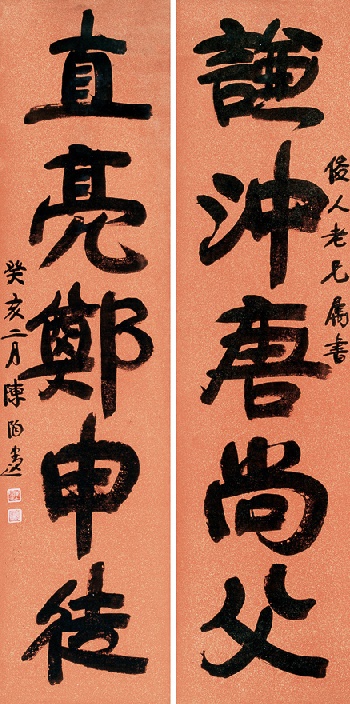 謙沖唐尚父
俊人老兄屬書
直亮鄭申徒
癸亥二月陳陶遺